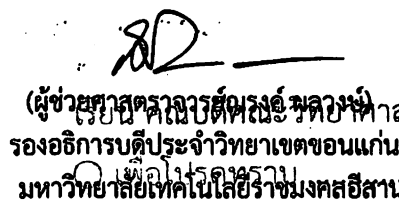 (ผู้ช่วยศาสตราจารย์ณรงค์ ผลวงษ์)
เรียน คณบดีคณะวิทยาศาส
รองอธิการบดีประจำวิทยาเขตขอนแก่น
เพื่อโปรดทราบ
มหาวิทยาลัยเทคโนโลยีราชมงคลอีสาน